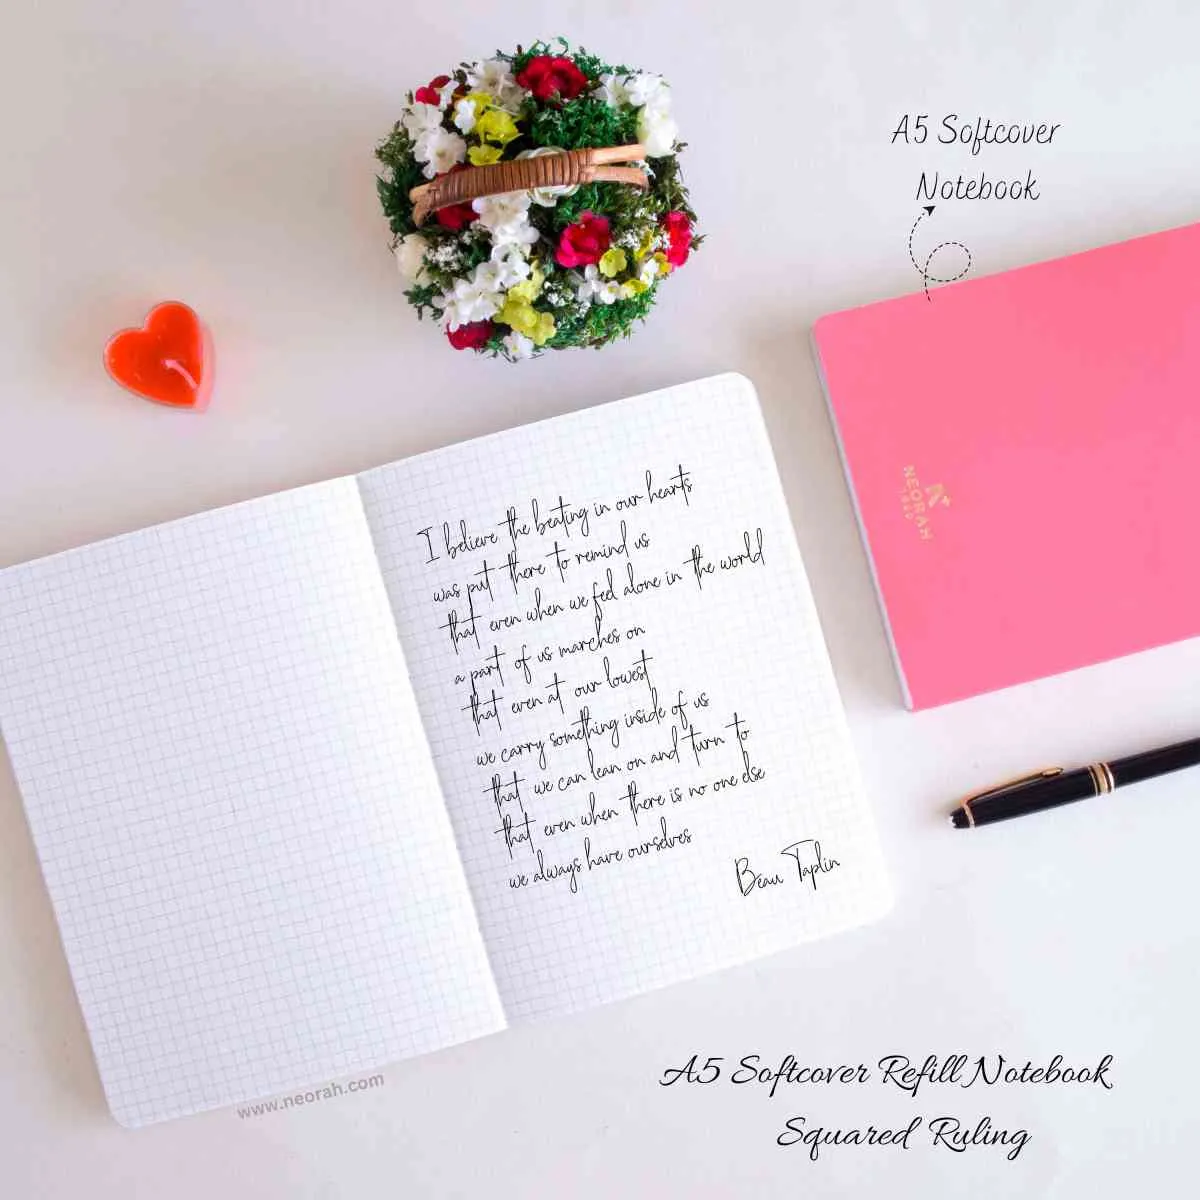 A5 Softcover
Notebook
NEORAH
I believe the beating in our hearts
was put there to remind us
that even when we feel alone in the world
a part of us marches on
that even at our lowest
we carry something inside of us
that we can lean on and turn to
that even when there is no one else
we always have ourselves
Beau Taplin
www.neorah.com
A5 Softcover Refill Notebook
Squared Ruling